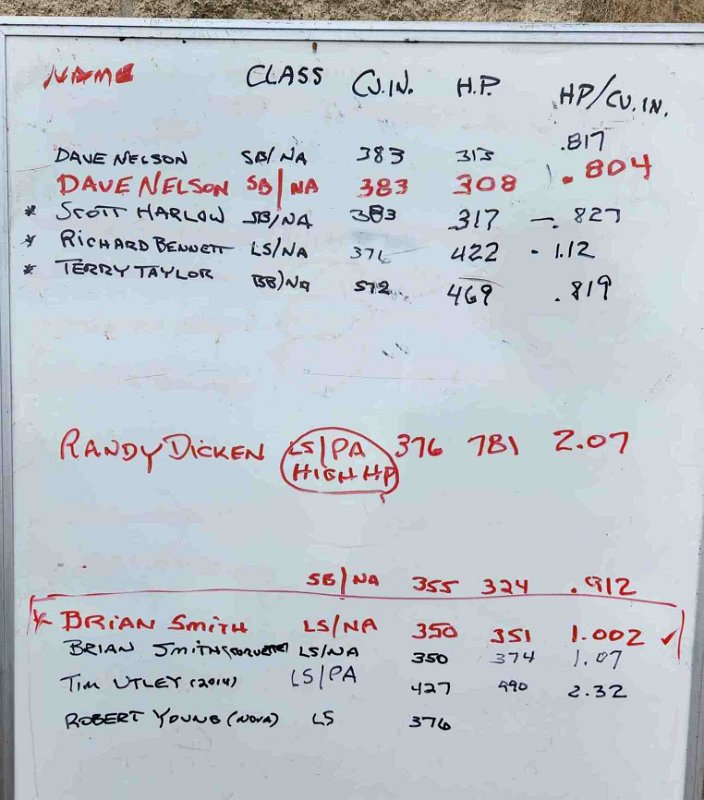 NAME CLASS CU.IN. H.P. HP/CU.IN.
DAVE NELSON SB/NA 383 313 .817
DAVE NELSON SB/NA 383 308 .804
* SCOTT HARLOW SB/NA 383 317 - .827
* RICHARD BENNETT LS/NA 376 422 - 1.12
* TERRY TAYLOR BB/NA 572 469 .819
RANDY DICKEN LS/PA 376 781 2.07
HIGH HP
SB/NA 355 324 .912
* BRIAN SMITH LS/NA 350 351 1.002 ✓
BRIAN SMITH (CORVETTE) LS/NA 350 374 1.07
TIM UTLEY (2014) LS/PA 427 990 2.32
ROBERT YOUNG (NOVA) LS 376